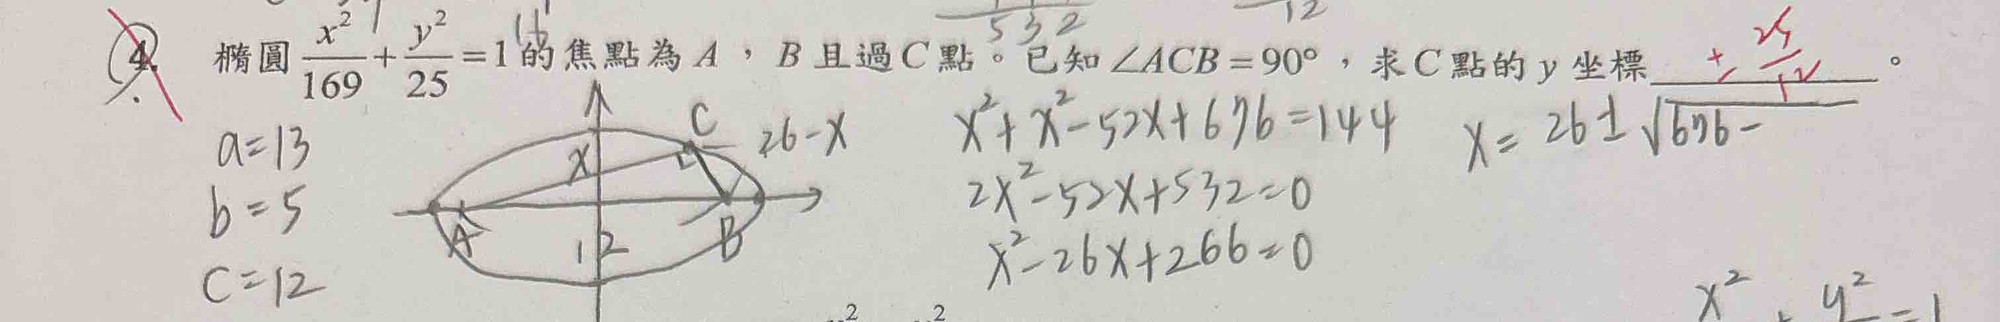 5 3 2
12
4. 橢圓 x²/169 + y²/25 = 1 的焦點為 A，B 且過 C 點。已知 ∠ACB = 90°，求 C 點的 y 坐標 ± 25/12 。
a=13
b=5
c=12
C
x
26-x
A
B
12
x²+x²-52x+676=144
2x²-52x+532=0
x²-26x+266=0
x= 26±√676-
x² + y² =1